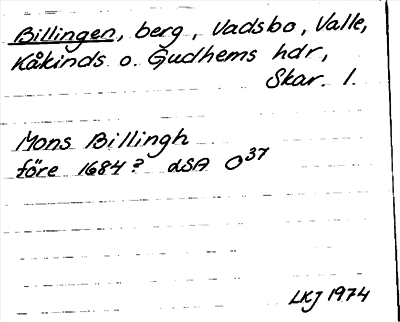 Billingen, berg, Vadsbo, Valle,
Kåkinds o. Gudhems hdr,
Skar. l.
Mons Billingh
före 1684? dSA O37
LKJ 1974